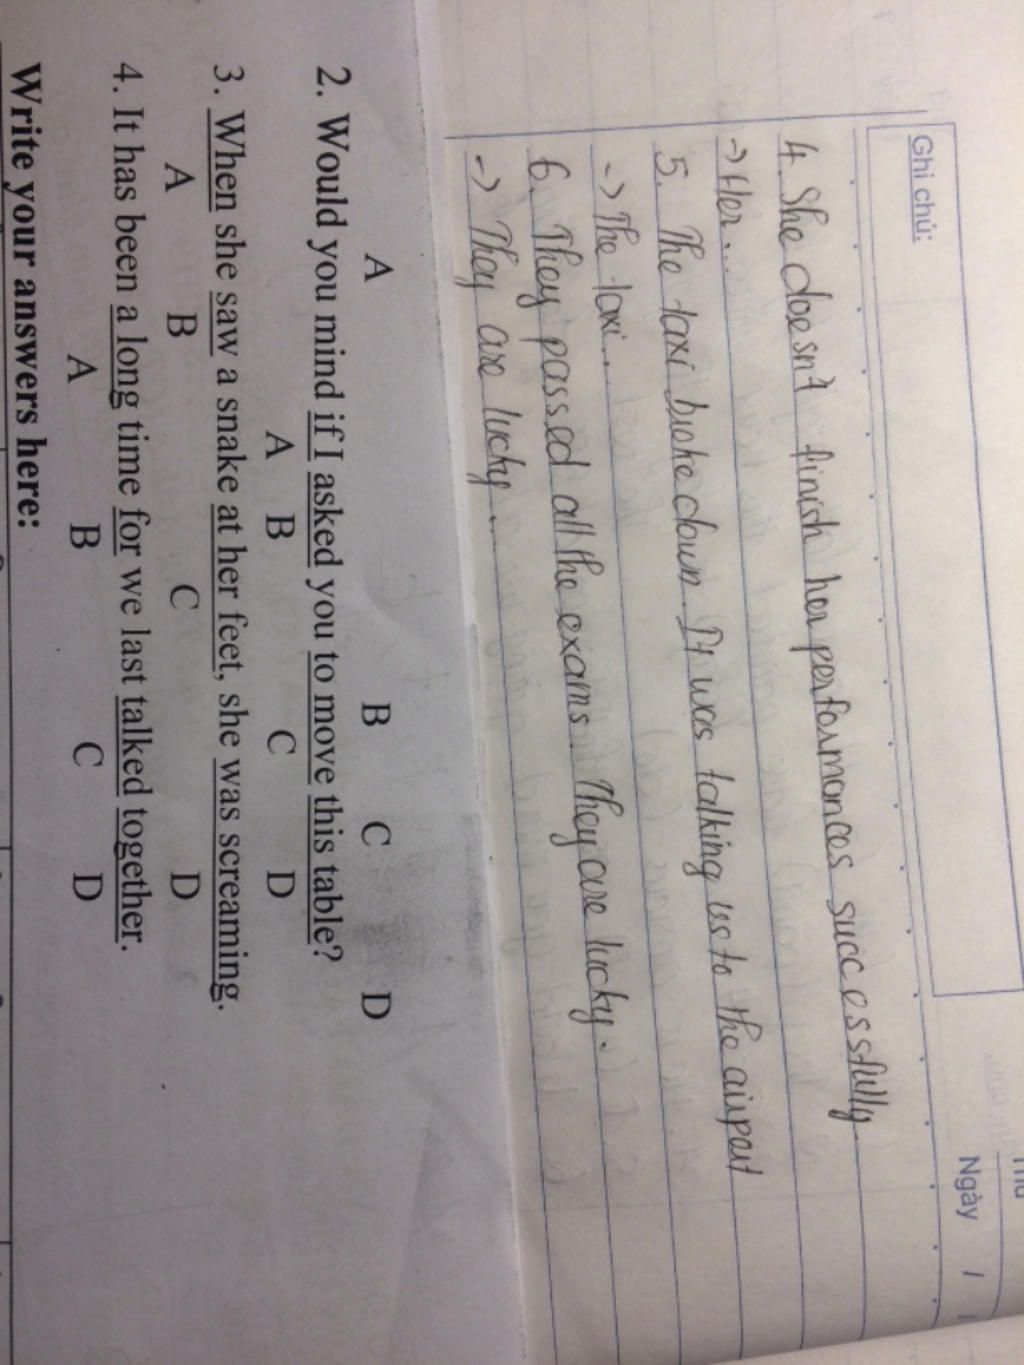 Ghi chú:
Thứ
Ngày / /
4. She doesn't finish her performances successfully
-> Her...
5. The taxi broke down. It was talking us to the airport
-> The taxi...
6. They passed all the exams. They are lucky.
-> They are lucky...
A B C D
2. Would you mind if I asked you to move this table?
A B C D
3. When she saw a snake at her feet, she was screaming.
A B C D
4. It has been a long time for we last talked together.
A B C D
Write your answers here: